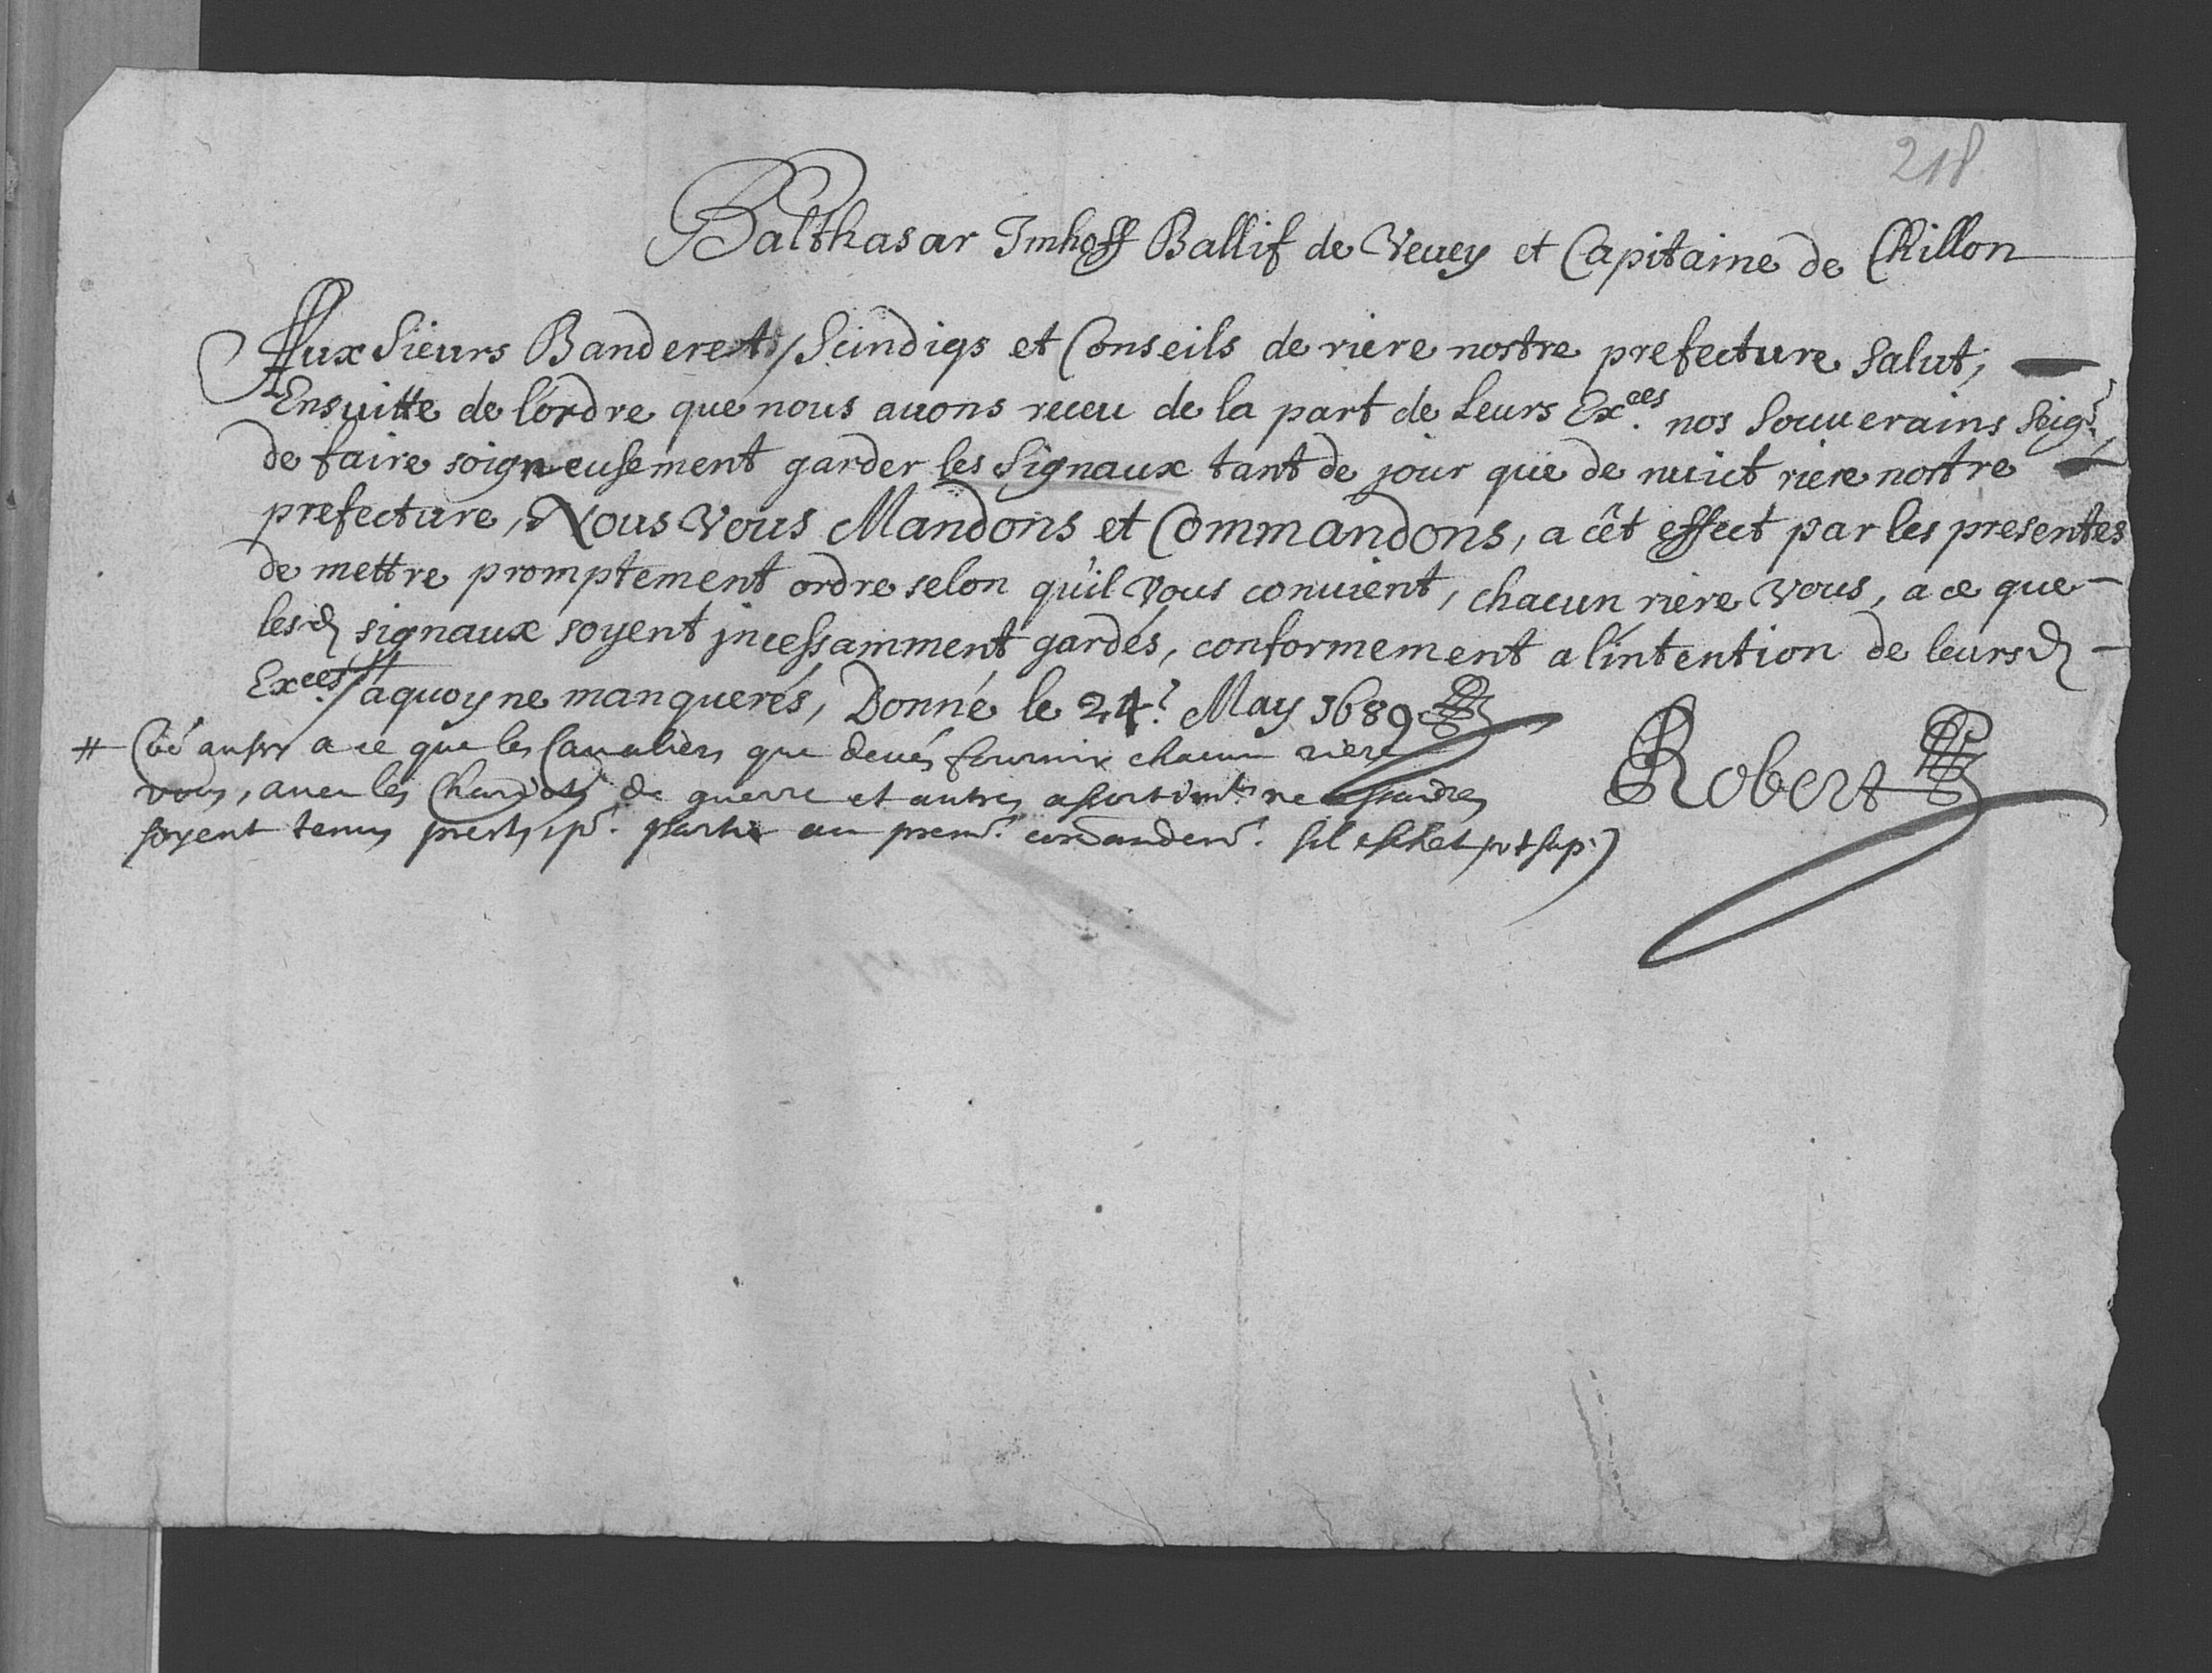 218
Balthasar Imhoff Ballif de Veuey et Capitaine de Chillon
Aux Sieurs Banderet, Scindiqs et Conseils de riere nostre prefecture Salut,
Ensuitte de l'ordre que nous auons receu de la part de Leurs Ex.ces nos Souuerains Seig.rs
de faire soigneusement garder les Signaux tant de jour que de nuict riere nostre
prefecture, Nous Vous Mandons et Commandons, a cêt effect par les presentes
de mettre promptement ordre selon qu'il Vous conuient, chacun riere Vous, a ce que
lesd signaux soyent jncessamment gardés, conformement a l'intention de leursd
Ex.ces # / aquoy ne manquerés, Donné le 24.e May 1689
# aussy a ce que les Caualiers que deués fournir chacun riere
vous, auec les Chariots de guerre et autres assortim.ts necessaires
soyent tenus prests p.r partir au prem.r comandem.t s'il eschet
Robert